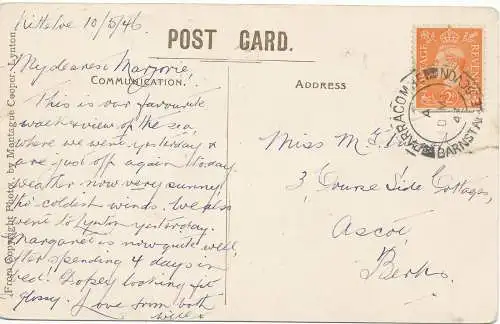 10/5/46
POST CARD.
My dearest Marjorie,
COMMUNICATION.
ADDRESS
This is our favourite
walk & view of the sea
where we were yesterday &
are just off again today.
weather now very sunny
tho' coldest winds. We also
went to Lynton yesterday.
Margaret is now quite well
after spending 4 days in
bed. Dopey looking fit
glossy. Love from both
Miss M.
3, Course Side Cottages,
Ascot
Berks.
From Copyright Photo. by Montague Cooper, Lynton.
POSTAGE REVENUE
PARRACOMBE
BARNSTAPLE DEVON